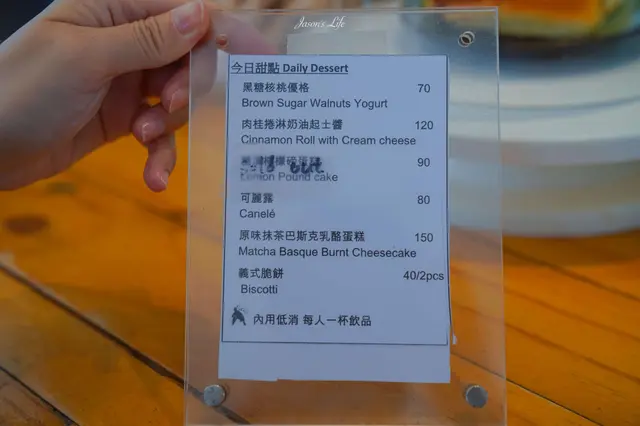 Jason's Life
今日甜點 Daily Dessert
黑糖核桃優格 70
Brown Sugar Walnuts Yogurt
肉桂捲淋奶油起士醬 120
Cinnamon Roll with Cream cheese
檸檬磅蛋糕 90
out
Lemon Pound cake
可麗露 80
Canelé
原味抹茶巴斯克乳酪蛋糕 150
Matcha Basque Burnt Cheesecake
義式脆餅 40/2pcs
Biscotti
內用低消 每人一杯飲品